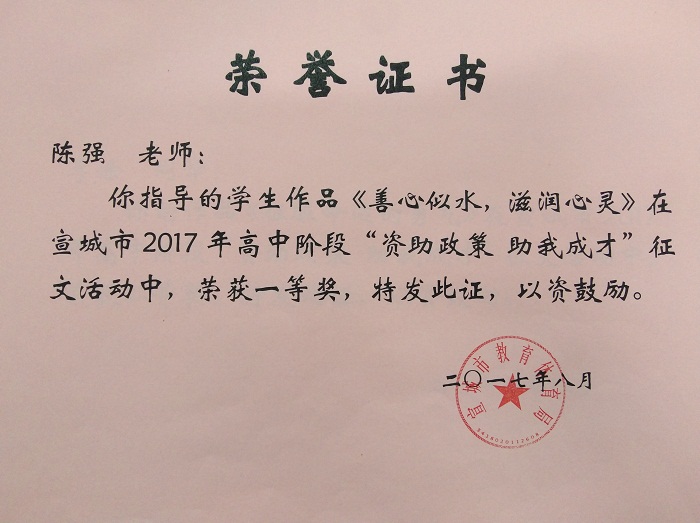 荣誉证书
陈强 老师：
你指导的学生作品《善心似水，滋润心灵》在
宣城市2017年高中阶段“资助政策 助我成才”征
文活动中，荣获一等奖，特发此证，以资鼓励。
宣城市教育体育局
二〇一七年八月